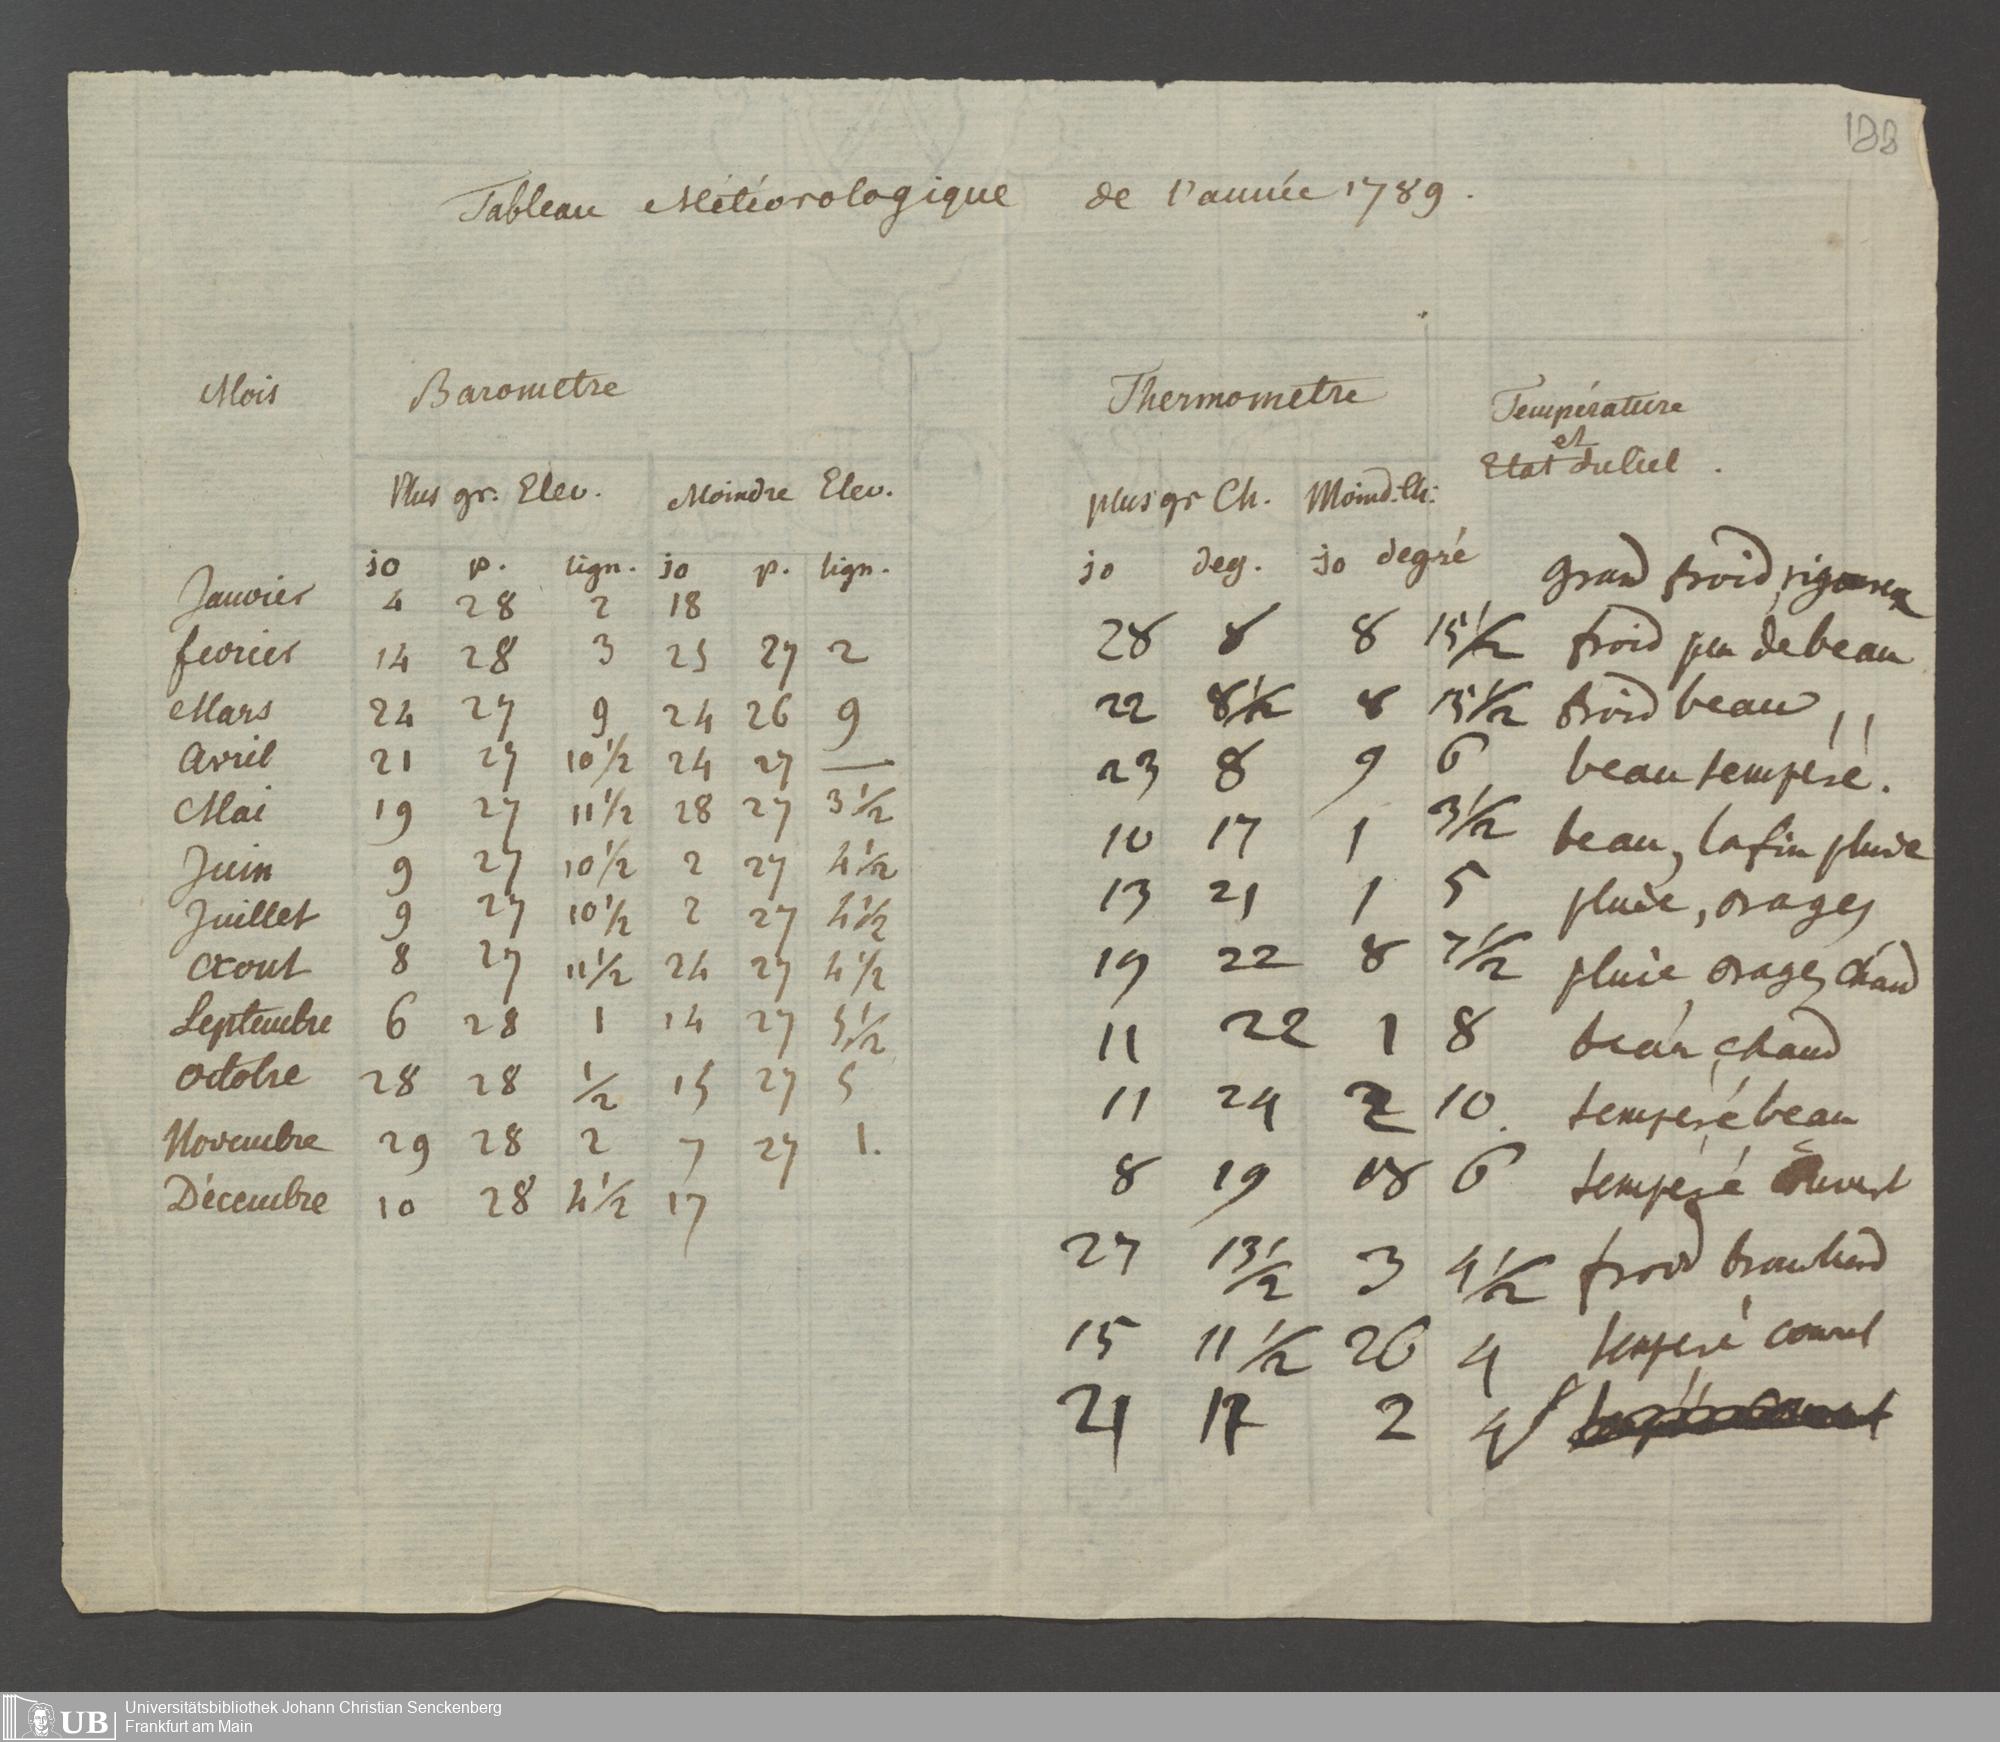 188
Tableau Météorologique de l'année 1789.
Mois Barometre Thermometre Température
et
Etat du Ciel.
Plus gr. Elev. Moindre Elev. plus gr Ch. Moind. Ch:
jo p. lign. jo p. lign. jo deg. jo degré
Janvier 4 28 2 18
fevrier 14 28 3 25 27 2
Mars 24 27 9 24 26 9
Avril 21 27 10 1/2 24 27 —
Mai 19 27 11 1/2 28 27 3 1/2
Juin 9 27 10 1/2 2 27 4 1/2
Juillet 9 27 10 1/2 2 27 4 1/2
Aout 8 27 11 1/2 24 27 4 1/2
Septembre 6 28 1 14 27 5 1/2
Octobre 28 28 1/2 15 27 5
Novembre 29 28 2 7 27 1.
Décembre 10 28 4 1/2 17
grand froid, rigoureux
28 8 8 15 1/2 froid peu de beau
22 8 1/2 8 15 1/2 froid beau
23 8 9 6 beau temperé.
10 17 1 3 1/2 beau, la fin pluie
13 21 1 5 pluie, orages
19 22 8 7 1/2 pluie, orages, chaud
11 22 1 8 beau, chaud
11 24 2 10. temperé beau
8 19 18 6 temperé
27 13 1/2 3 4 1/2 froid brouillard
15 11 1/2 26 4 temperé couvert
21 17 2 4
UB
Universitätsbibliothek Johann Christian Senckenberg
Frankfurt am Main